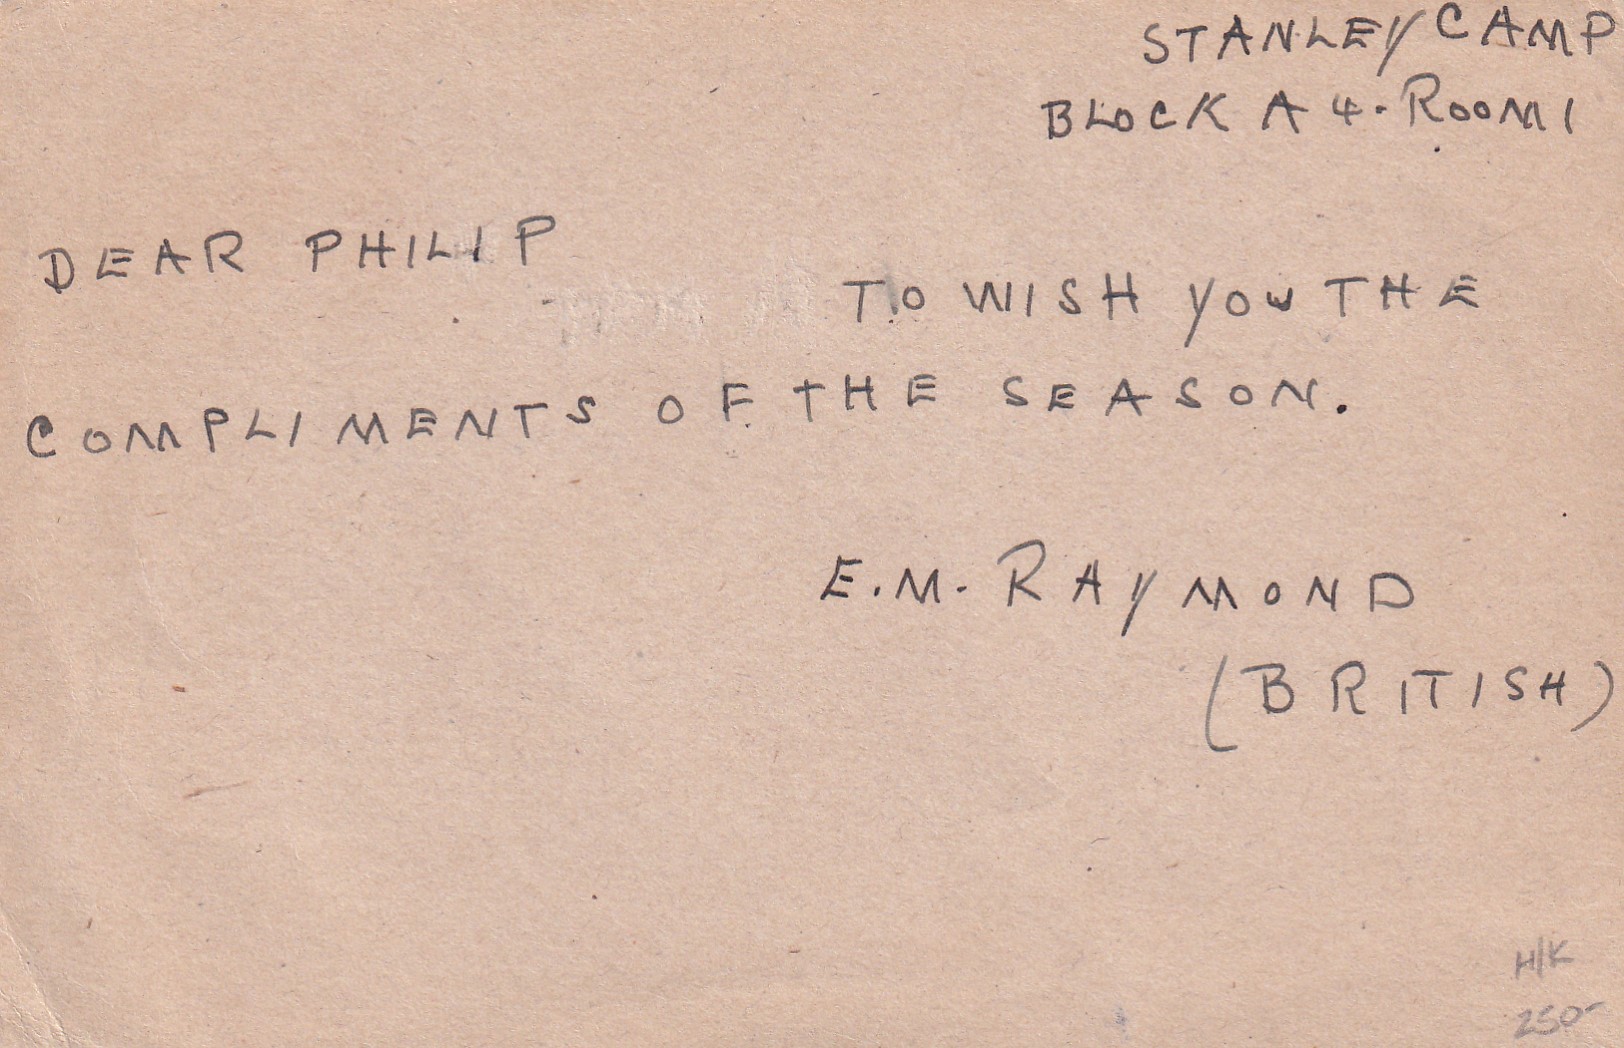 STANLEY CAMP
BLOCK A 4. ROOM 1
DEAR PHILIP
TO WISH YOU THE
COMPLIMENTS OF THE SEASON.
E.M. RAYMOND
(BRITISH)
H/K
250-